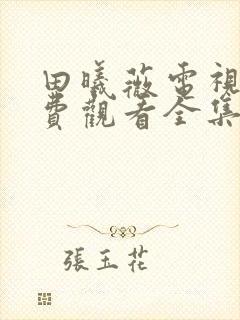 田曦薇電視
費觀看全集
張玉花